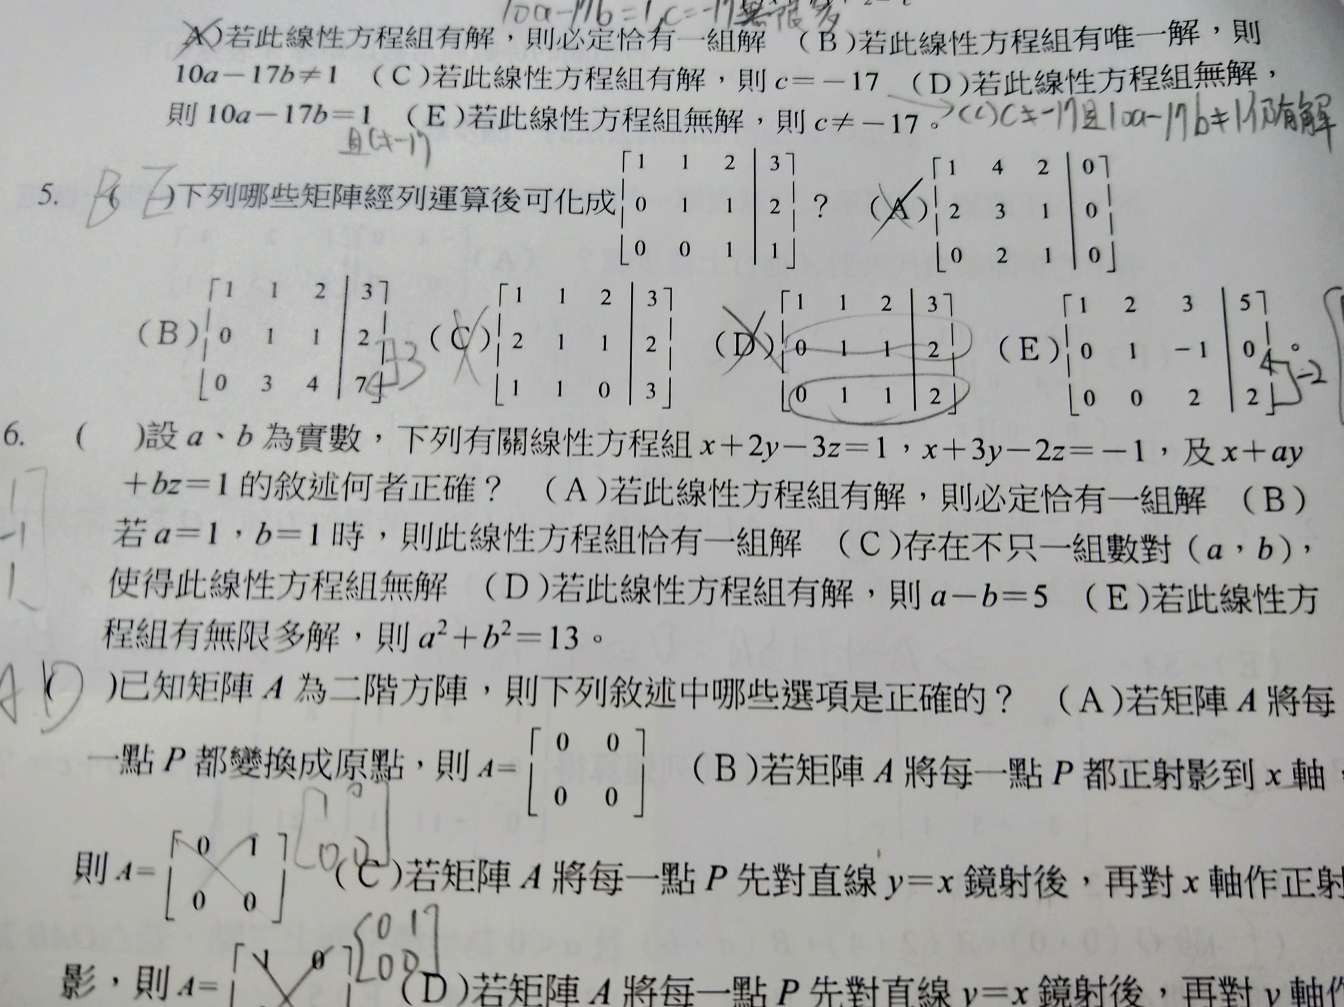 10a-17b=1, c=-17無限多
(A)若此線性方程組有解，則必定恰有一組解 (B)若此線性方程組有唯一解，則
10a－17b≠1 (C)若此線性方程組有解，則 c＝－17 (D)若此線性方程組無解，
則 10a－17b＝1 (E)若此線性方程組無解，則 c≠－17。
且c≠-17
(C)c≠-17且10a-17b≠1仍有解
5. BE ( )下列哪些矩陣經列運算後可化成 [1 1 2 | 3] ? (A) [1 4 2 | 0]
[0 1 1 | 2] [2 3 1 | 0]
[0 0 1 | 1] [0 2 1 | 0]
(B) [1 1 2 | 3] (C) [1 1 2 | 3] (D) [1 1 2 | 3] (E) [1 2 3 | 5]
[0 1 1 | 2] [2 1 1 | 2] [0 1 1 | 2] [0 1 －1 | 0] 。
[0 3 4 | 7] [1 1 0 | 3] [0 1 1 | 2] [0 0 2 | 2]
-3
-2
6. ( )設 a、b 為實數，下列有關線性方程組 x＋2y－3z＝1，x＋3y－2z＝－1，及 x＋ay
＋bz＝1 的敘述何者正確？ (A)若此線性方程組有解，則必定恰有一組解 (B)
若 a＝1，b＝1 時，則此線性方程組恰有一組解 (C)存在不只一組數對（a，b），
使得此線性方程組無解 (D)若此線性方程組有解，則 a－b＝5 (E)若此線性方
程組有無限多解，則 a²＋b²＝13。
AD ( )已知矩陣 A 為二階方陣，則下列敘述中哪些選項是正確的？ (A)若矩陣 A 將每
一點 P 都變換成原點，則 A= [0 0] (B)若矩陣 A 將每一點 P 都正射影到 x 軸，
[0 0]
[1 0]
[0 0]
則 A= [0 1] (C)若矩陣 A 將每一點 P 先對直線 y=x 鏡射後，再對 x 軸作正射
[0 0]
[0 1]
[0 0]
影，則 A= [1 0] (D)若矩陣 A 將每一點 P 先對直線 y=x 鏡射後，再對 y 軸作